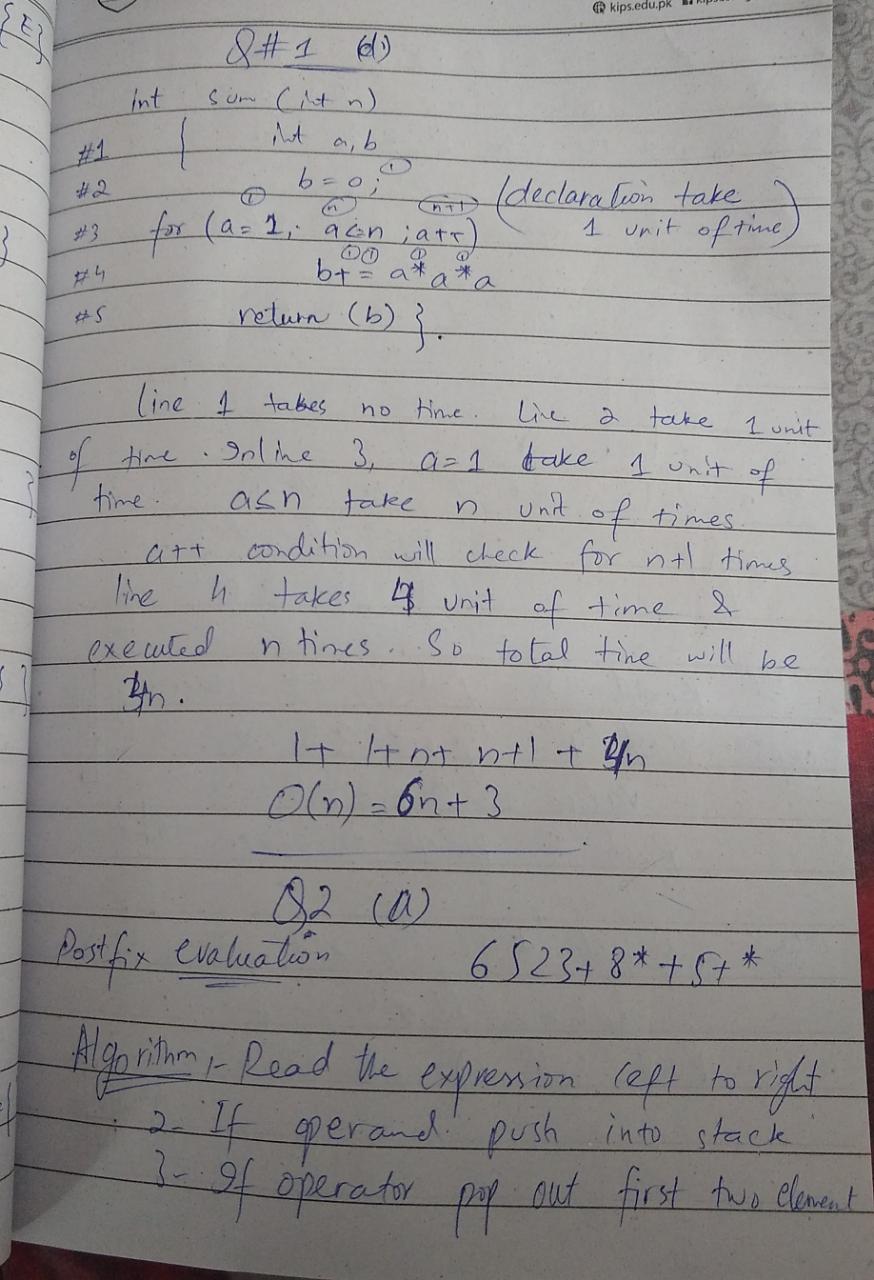 kips.edu.pk
{E}
Q#1 (d)
int sum (int n)
#1 { int a, b
#2 b = 0; 1
(declaration take 1 unit of time)
1 n n+1
#3 for (a = 1; a≤n ; a++)
1 1 1 1
#4 b+ = a*a*a
#5 return (b) }.
line 1 takes no time. Line 2 take 1 unit
of time. In line 3, a=1 take 1 unit of
time. a≤n take n unit of times.
a++ condition will check for n+1 times
line 4 takes 4 unit of time &
executed n times. So total time will be
4n.
1+ 1+n+ n+1 + 4n
O(n) = 6n+3
Q2 (a)
Postfix evaluation 6 5 2 3 + 8 * + 5 + *
Algorithm 1- Read the expression left to right
2- If operand push into stack
3- If operator pop out first two element